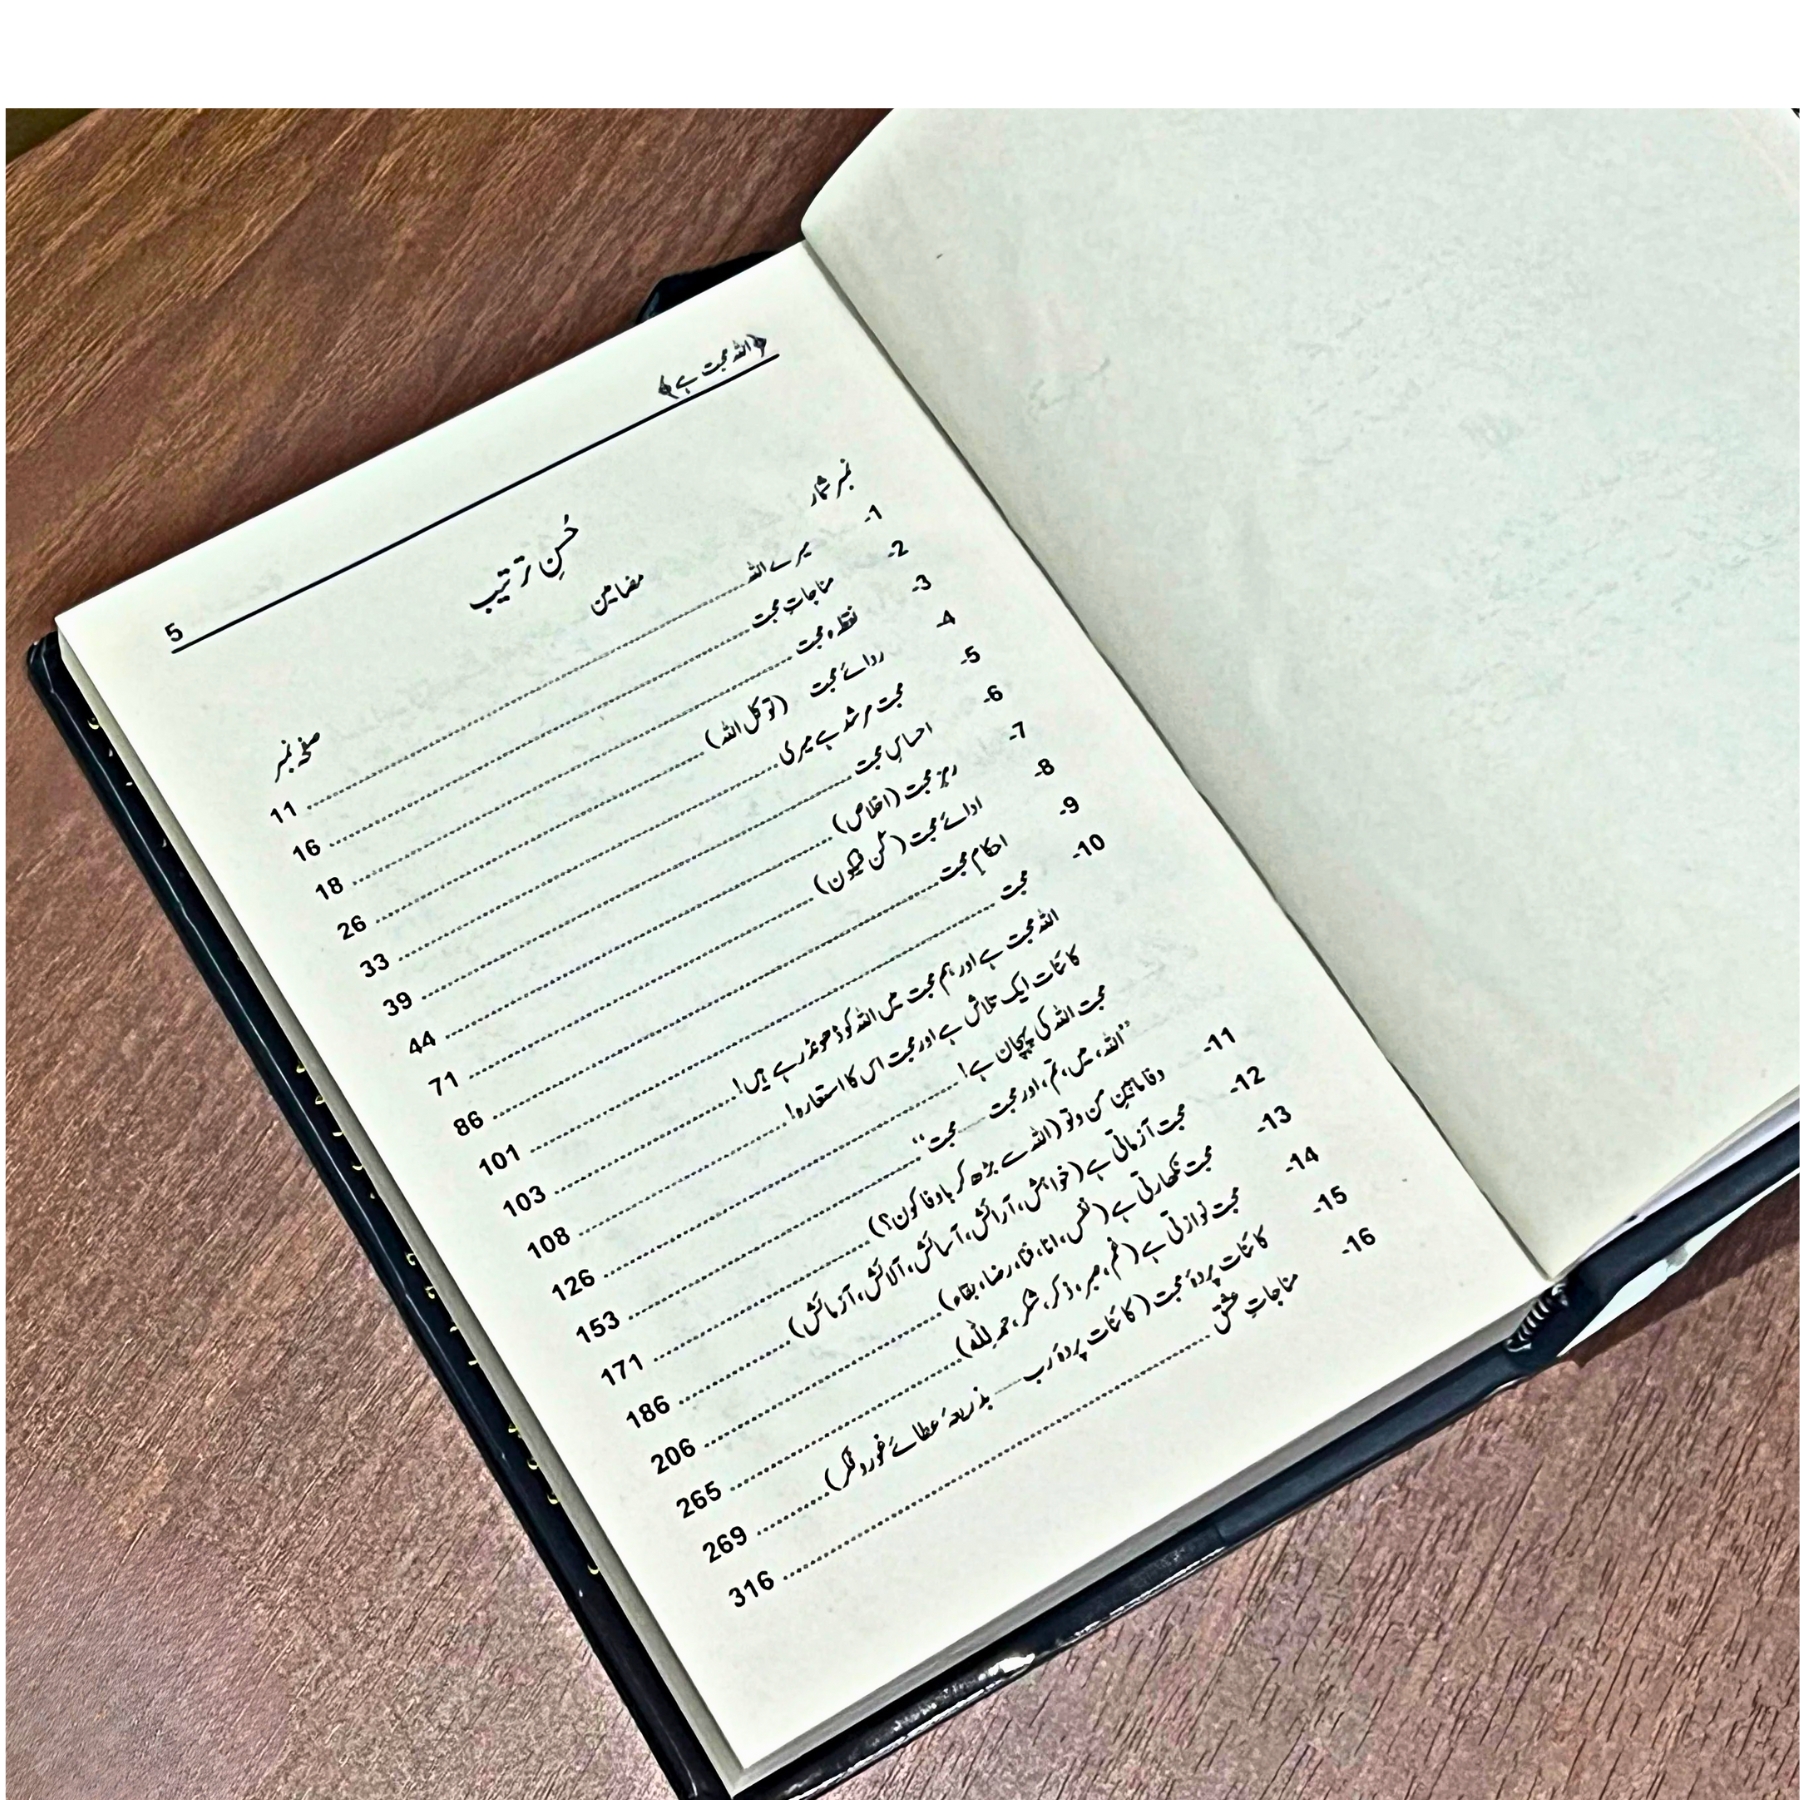 ﴿اللہ محبت ہے﴾ 5
حُسنِ ترتیب
نمبر شمار مضامین صفحہ نمبر
1- میرے اللہ 11
2- مناجاتِ محبت 16
3- نقطہ محبت 18
4- ردائے محبت (توکل اللہ) 26
5- محبت مرشد ہے میری 33
6- احساسِ محبت 39
7- رمزِ محبت (اخلاص) 44
8- ادائے محبت (کُن فیکون) 71
9- احکامِ محبت 86
10- محبت 101
اللہ محبت ہے اور ہم محبت میں اللہ کو ڈھونڈ رہے ہیں! 103
کائنات ایک تلاش ہے اور محبت اس کا استعارہ! 108
محبت اللہ کی پہچان ہے! 126
”اللہ، میں، تم، اور محبت ...... محبت“ 153
11- وفا مابینِ من و تو (اللہ سے بڑھ کر باوفا کون؟) 171
12- محبت آزماتی ہے (خواہش، آرائش، آسائش، آلائش، آزمائش) 186
13- محبت نکھارتی ہے (نفس، انا، فنا، رضا، بقاء) 206
14- محبت نوازتی ہے (غم، صبر، ذکر، شکر، حمد لِلّٰہ) 265
15- کائنات پردۂ محبت (کائنات پردۂ رب ...... بذریعۂ عطائے غور و فکر) 269
16- مناجاتِ عشق 316